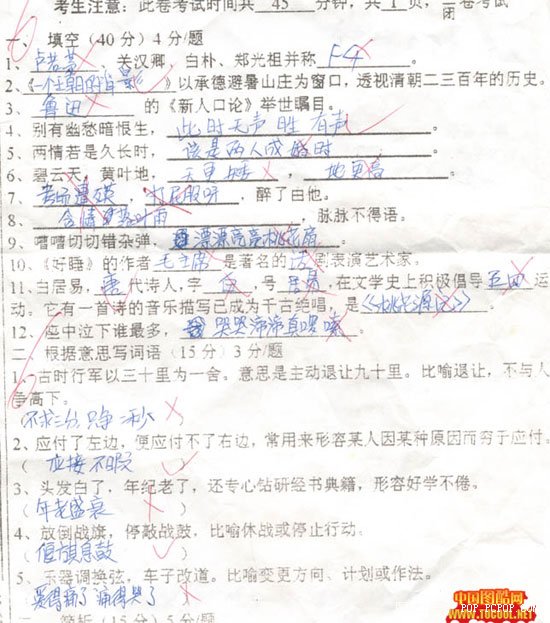 考生注意：此卷考试时间共 45 分钟，共 1 页，闭卷考试
一、填空（40分）4分/题
1、卢若蒂，关汉卿，白朴、郑光祖并称 F4
2、《一个王朝的背影》以承德避暑山庄为窗口，透视清朝二三百年的历史。
3、鲁迅 的《新人口论》举世瞩目。
4、别有幽愁暗恨生，此时无声胜有声。
5、两情若是久长时，该是两人成婚时
6、碧云天，黄叶地，天更 ，地更高。
7、 ，打死服呀，醉了由他。
8、含情 ，脉脉不得语。
9、嘈嘈切切错杂弹，漂漂亮亮桃花扇。
10、《好睡》的作者毛主席是著名的话剧表演艺术家。
11、白居易，唐代诗人，字白，号居易，在文学史上积极倡导五四运
动。它有一首诗的音乐描写已成为千古绝唱，是《桃花源记》。
12、座中泣下谁最多，哭哭涕涕真啰嗦。
二、根据意思写词语（15分）3分/题
1、古时行军以三十里为一舍。意思是主动退让九十里。比喻退让，不与人
争高下。
（不求三分，只争二秒 ）
2、应付了左边，便应付不了右边，常用来形容某人因某种原因而穷于应付。
（ 应接不暇 ）
3、头发白了，年纪老了，还专心钻研经书典籍，形容好学不倦。
（年老盛衰 ）
4、放倒战旗，停敲战鼓，比喻休战或停止行动。
（偃旗息鼓 ）
5、乐器调换弦，车子改道。比喻变更方向、计划或作法。
爱得痛了 痛得哭了
（15分）5分/题
中国图酷网
POP.PCPOP.com
WWW.TUCOOL.NET